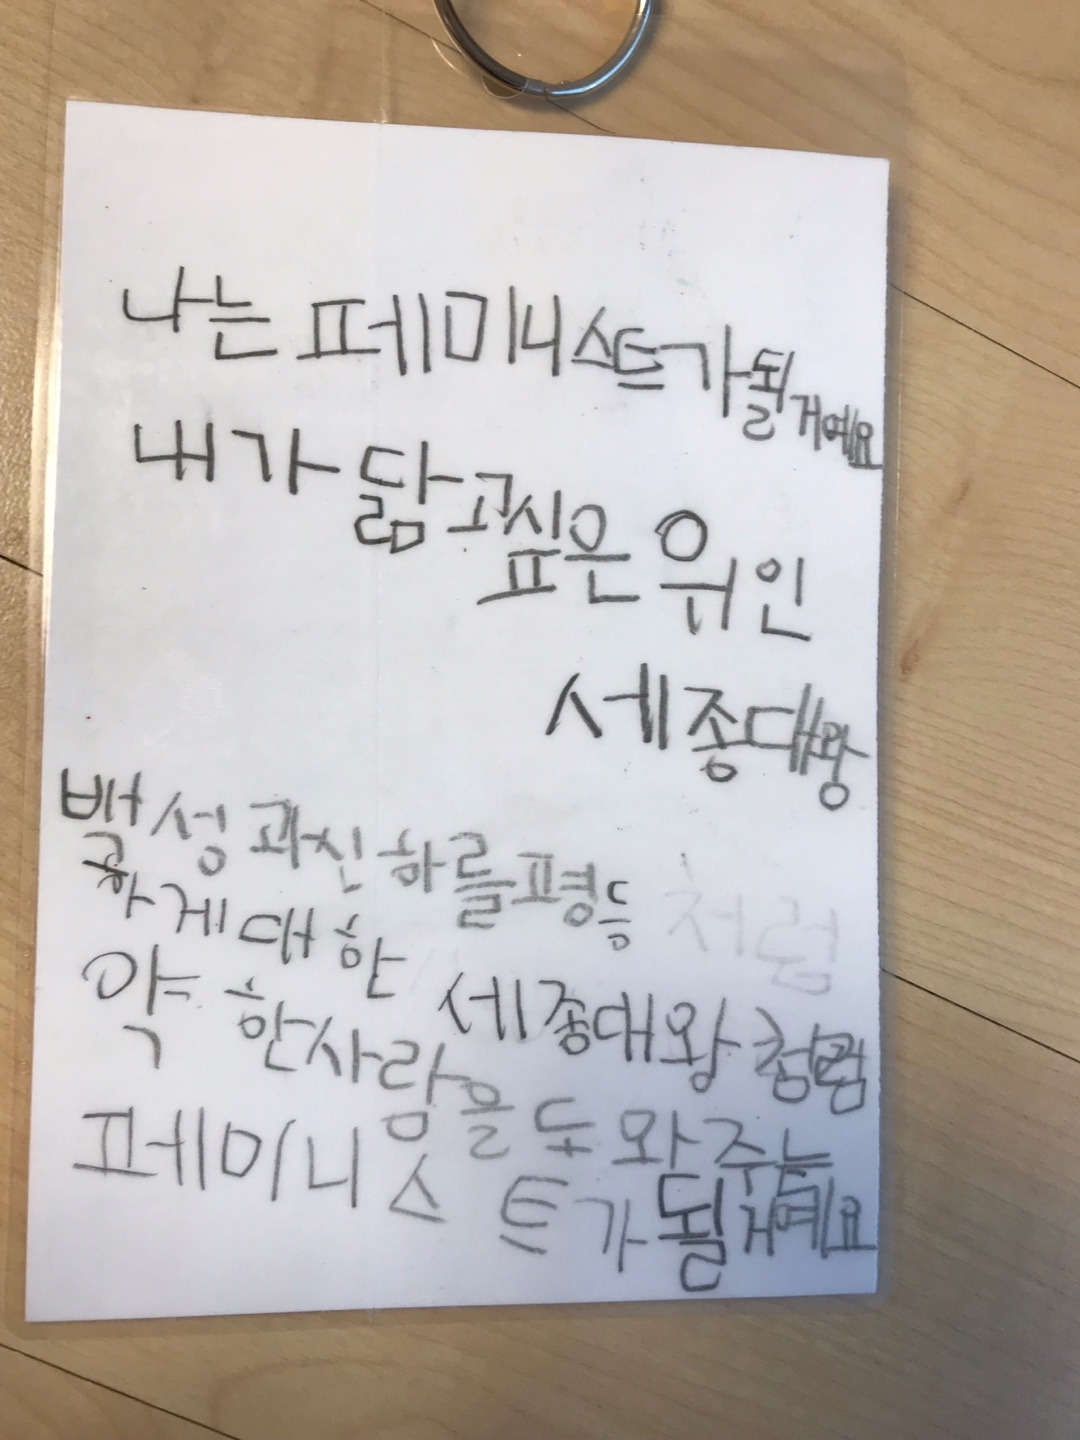 나는 페미니스트가될거예요
내가 닮고싶은 위인
세종대왕
백성과신하를평등
하게대한 세종대왕처럼
약한사람을도와주는
페미니스트가될거예요